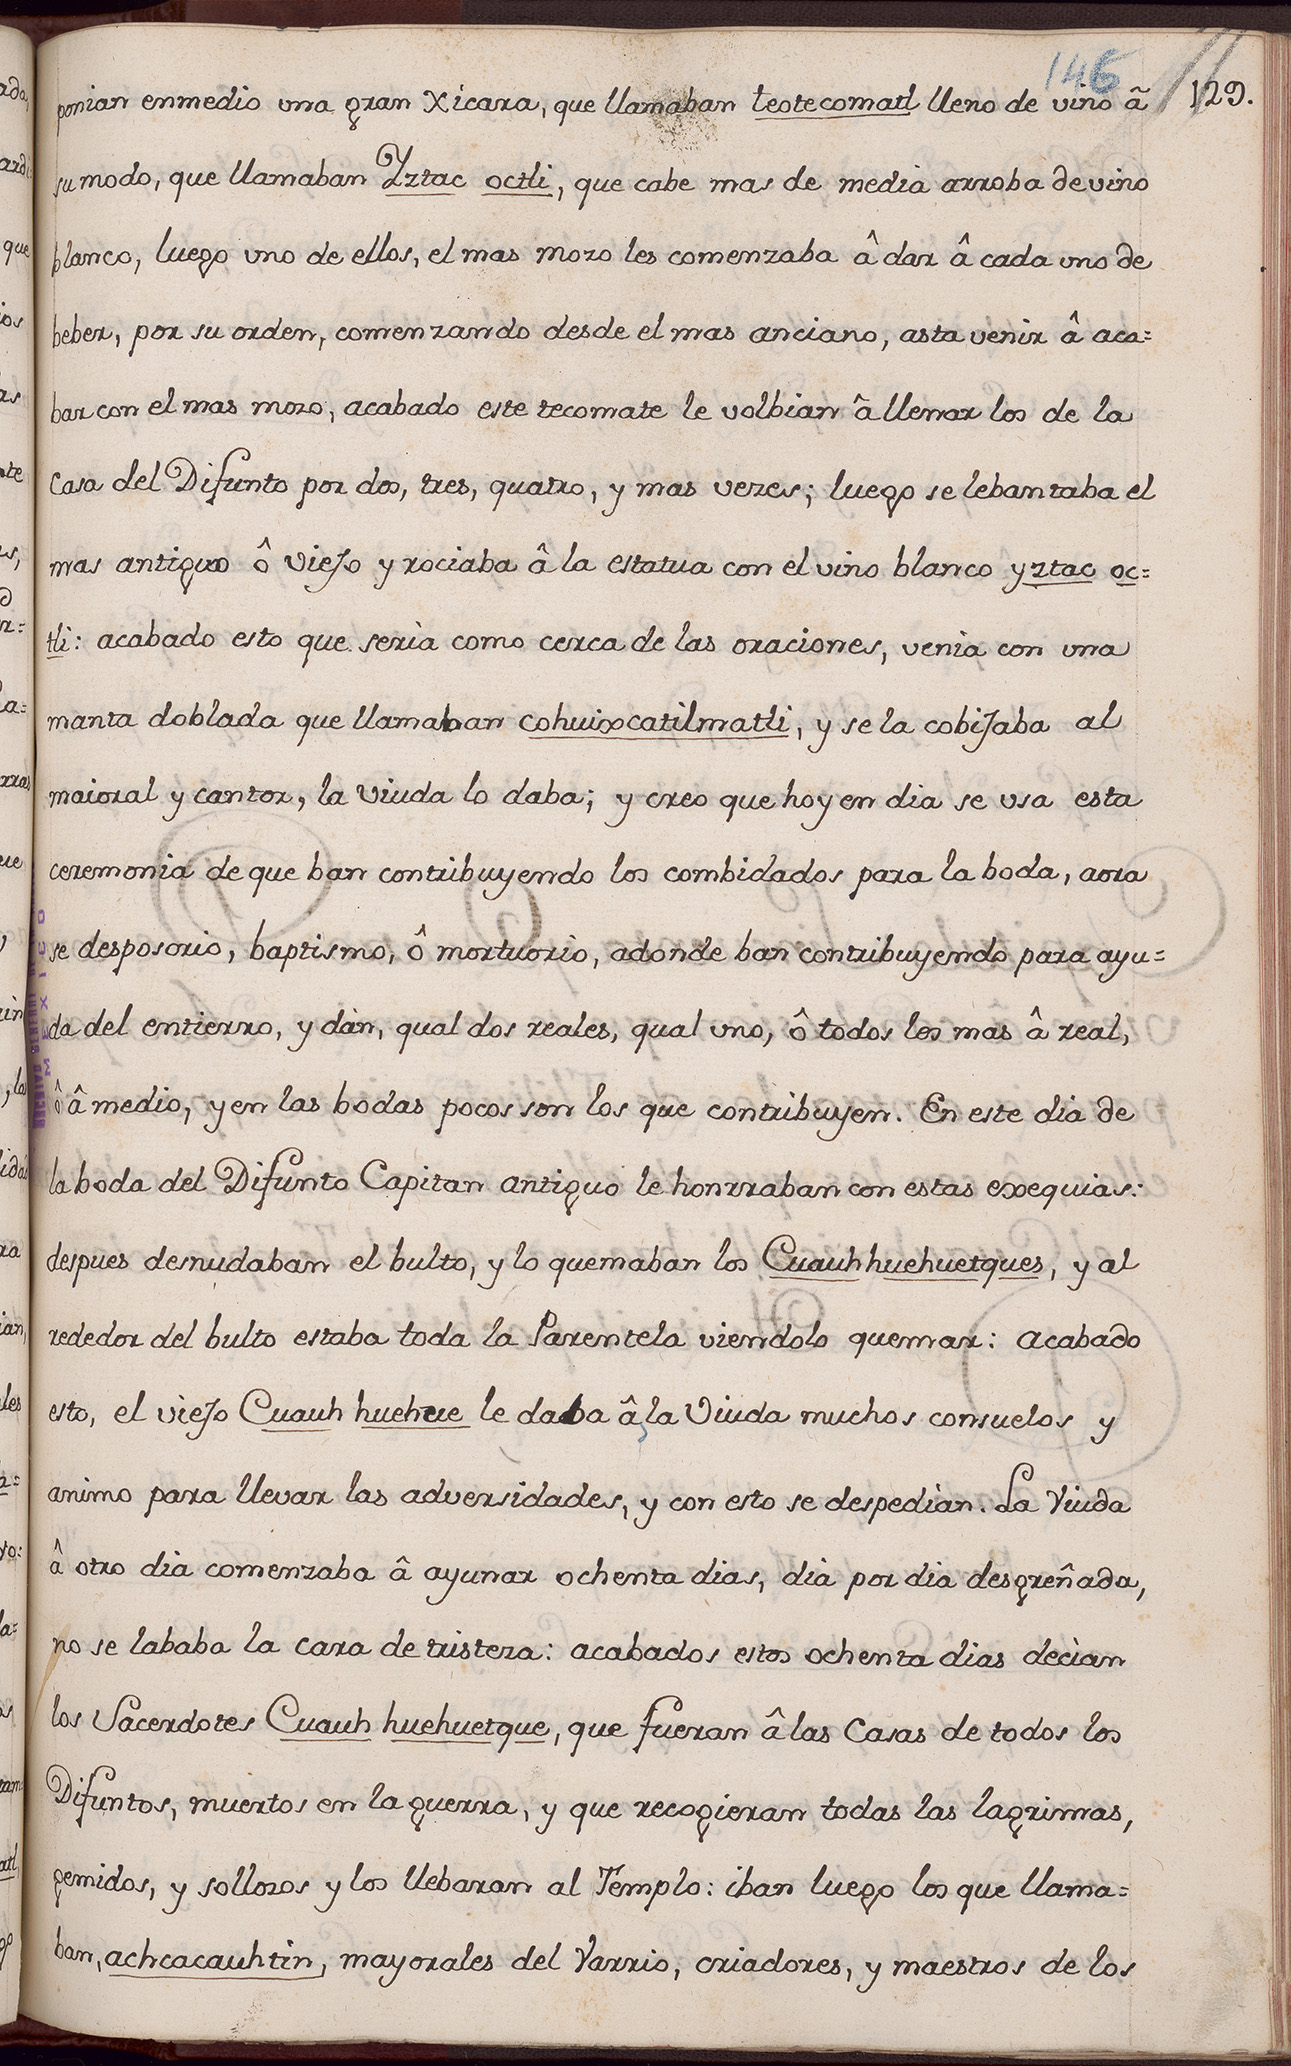 146
129.
ponian enmedio una gran Xicara, que llamaban teotecomatl lleno de vino â
su modo, que llamaban Yztac octli, que cabe mas de media arroba de vino
blanco, luego uno de ellos, el mas mozo les comenzaba â dar â cada uno de
beber, por su orden, comenzando desde el mas anciano, asta venir â aca=
bar con el mas mozo, acabado este tecomate le volbian â llenar los de la
Casa del Difunto por dos, tres, quatro, y mas vezes; luego se lebantaba el
mas antiguo ô viejo y rociaba â la estatua con el vino blanco yztac oc=
tli: acabado esto que seria como cerca de las oraciones, venia con una
manta doblada que llamaban cohuixcatilmatli, y se la cobijaba al
maioral y cantor, la viuda lo daba; y creo que hoy en dia se usa esta
ceremonia de que ban contribuyendo los combidados para la boda, aora
se desposorio, baptismo, ô mortuorio, adonde ban contribuyendo para ayu=
da del entierro, y dàn, qual dos reales, qual uno, ô todos los mas â real,
ô â medio, y en las bodas pocos son los que contribuyen. En este dia de
la boda del Difunto Capitan antiguo le honrraban con estas exequias:
despues desnudaban el bulto, y lo quemaban los Cuauhhuehuetques, y al
rededor del bulto estaba toda la Parentela viendolo quemar: acabado
esto, el viejo Cuauh huehue le daba â la Viuda muchos consuelos y
animo para llevar las adversidades, y con esto se despedian. La Viuda
â otro dia comenzaba â ayunar ochenta dias, dia por dia desgreñada,
no se lababa la cara de tristeza: acabados estos ochenta dias decian
los Sacerdotes Cuauh huehuetque, que fueran â las Casas de todos los
Difuntos, muertos en la guerra, y que recogieran todas las lagrimas,
gemidos, y sollozos y los llebaran al Templo: iban luego los que llama=
ban, achcacauhtin, mayorales del Varrio, criadores, y maestros de los